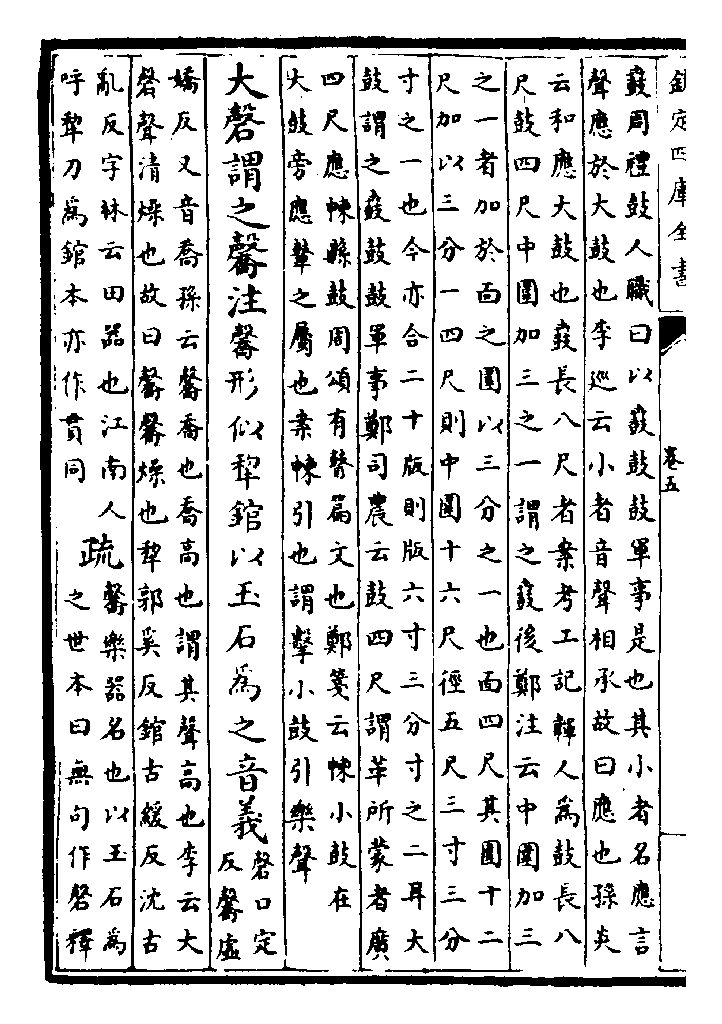 欽定四庫全書
卷五
鼖周禮鼓人職曰以鼖鼓鼓軍事是也其小者名應言
聲應於大鼓也李廵云小者音聲相承故曰應也孫炎
云和應大鼓也鼖長八尺者案考工記韗人為鼓長八
尺鼓四尺中圍加三之一謂之鼖後鄭注云中圍加三
之一者加於面之圍以三分之一也面四尺其圍十二
尺加以三分一四尺則中圍十六尺徑五尺三寸三分
寸之一也今亦合二十版則版六寸三分寸之二耳大
鼓謂之鼖鼖鼓鼓軍事鄭司農云鼓四尺謂革所蒙者廣
四尺應朄縣鼓周頌有瞽篇文也鄭箋云朄小鼓在
大鼓旁應鼙之屬也案朄引也謂擊小鼓引樂聲
大磬謂之毊注毊形似犂錧以玉石為之音義
磬口定
反毊虛
嬌反又音喬孫云毊喬也喬高也謂其聲高也李云大
磬聲清燥也故曰毊毊燥也犂郭奚反錧古緩反沈古
亂反字林云田器也江南人
呼犂刀為錧本亦作貫同
疏
毊樂器名也以玉石為
之世本曰無句作磬釋